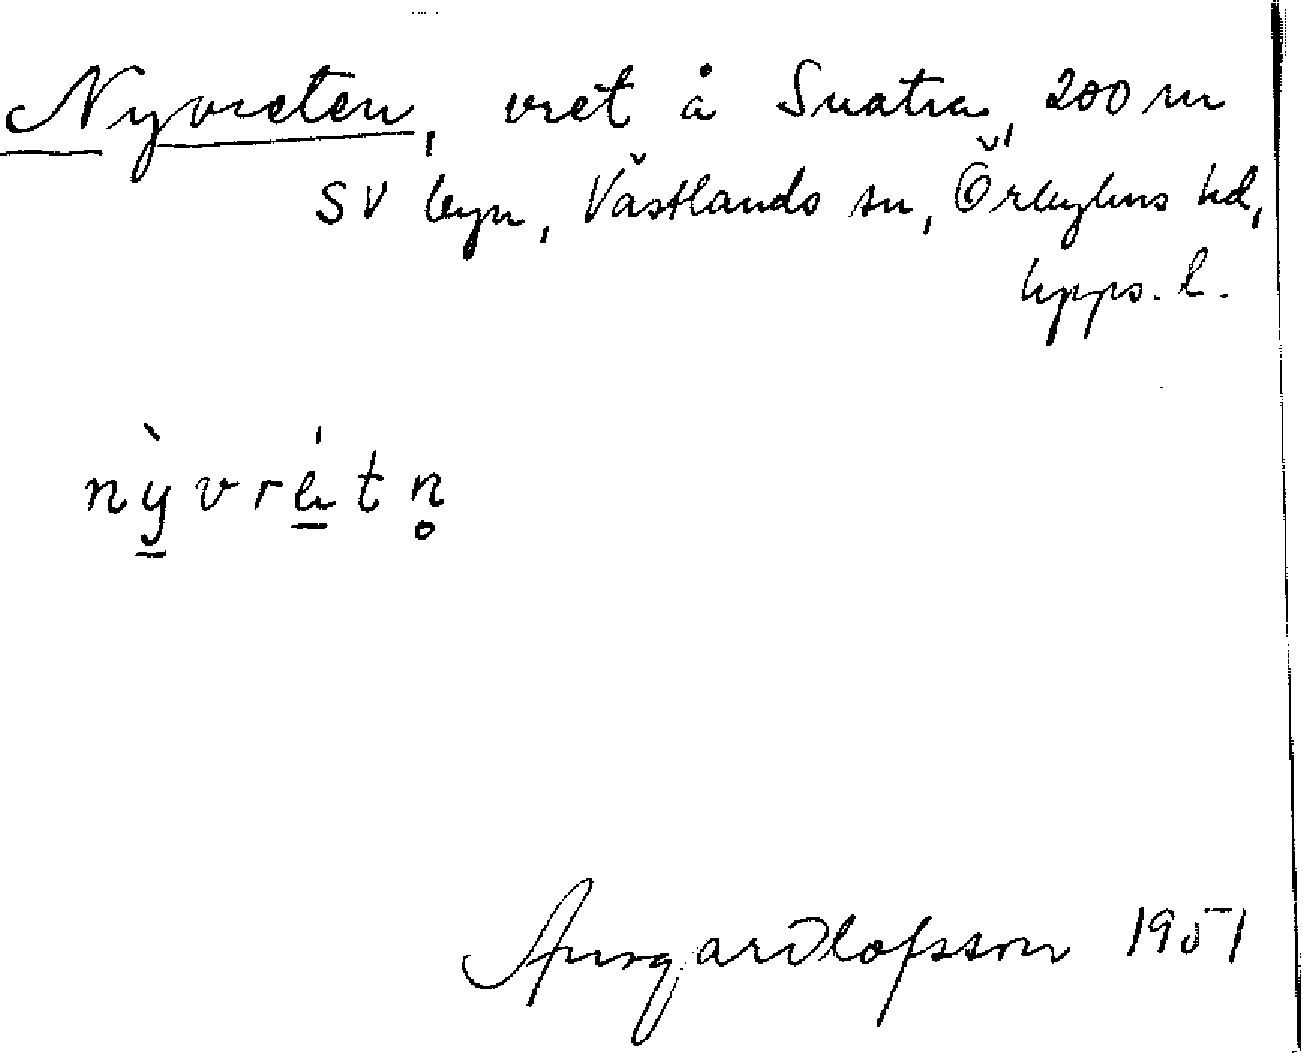 Nyvreten, vret å Snatra, 200 m
SV byn, Västlands sn, Örbyhus hd,
Upps. l.
nỳ̠vré̠tn̥
Ansgar Olofsson 1951